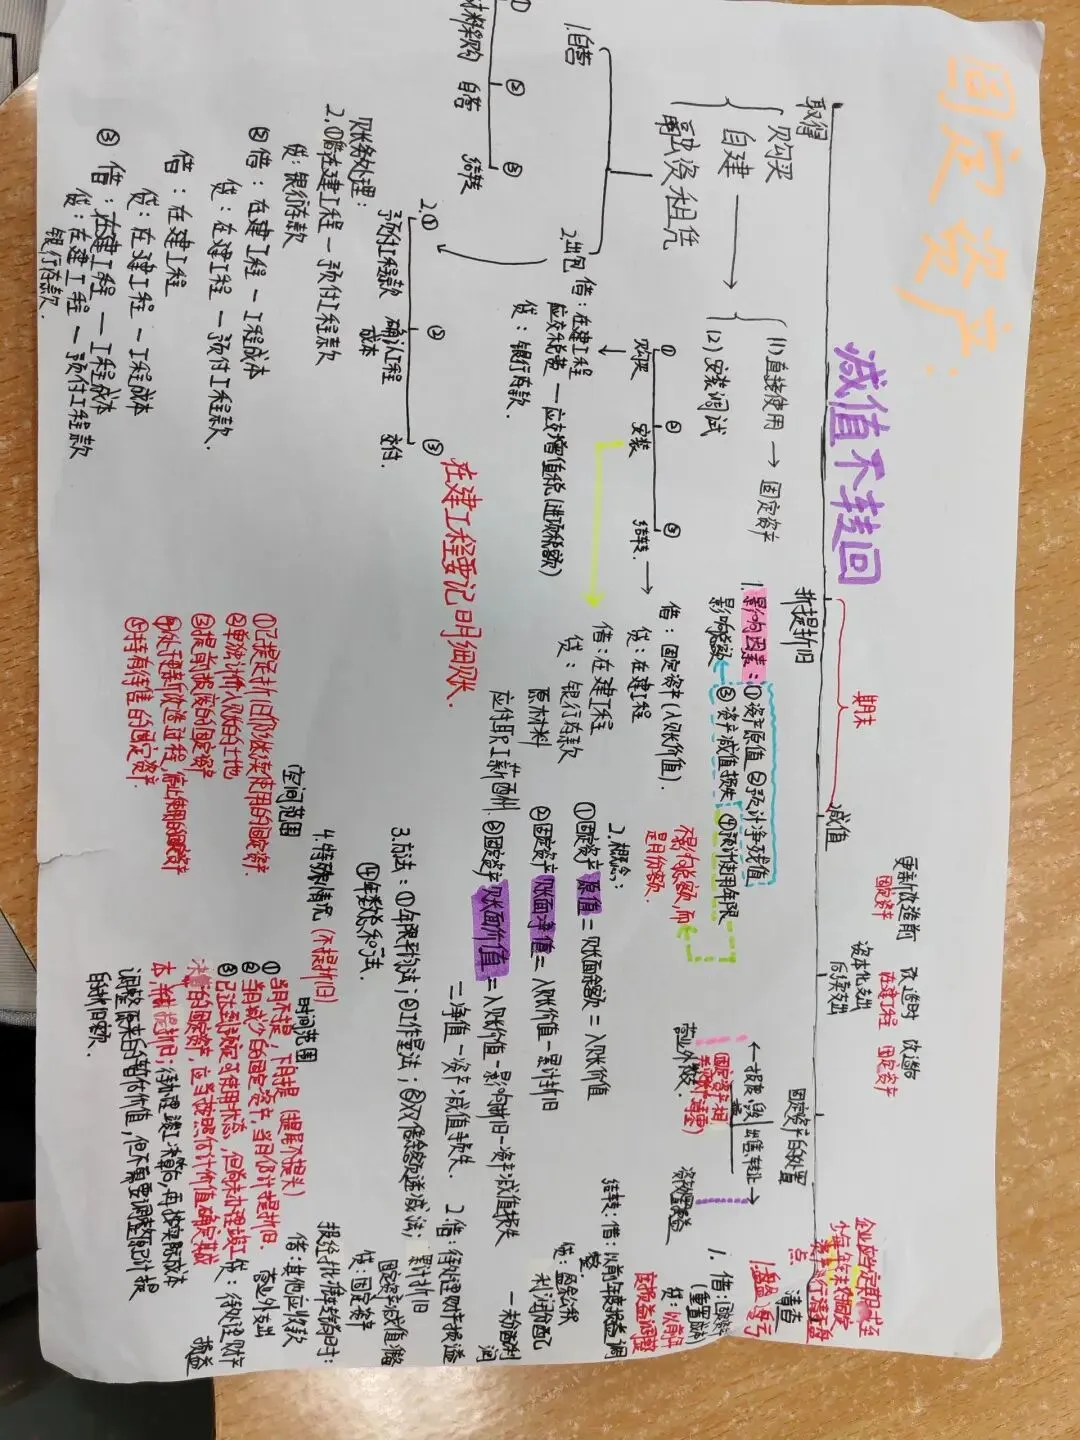 固定资产：
减值不转回
取得
购买
自建
融资租任
(1)直接使用 → 固定资产
(2)安装调试
① ② ③
购买 安装 结转
借：固定资产(入账价值).
贷：在建工程
借：在建工程
应交税费 — 应交增值税(进项税额)
贷：银行存款.
借：在建工程
贷：银行存款
原材料
应付职工薪酬
1.自营
2.出包
① ② ③
材料采购 自营 结转
2.① ② ③
预付工程款 确认工程成本 交付.
在建工程要记明细账.
账务处理：
2.①借：在建工程 — 预付工程款
贷：银行存款
②借：在建工程 — 工程成本
贷：在建工程 — 预付工程款.
借：在建工程
贷：在建工程 — 工程成本
③借：在建工程 — 工程成本
贷：在建工程 — 预付工程款
银行存款.
期末
折提折旧
减值
1.影响因素：①资产原值 ②预计净残值
影响总额 ③资产减值损失 ④预计使用年限
不影响总额,而是月份额.
2.概念：
①固定资产原值 = 账面余额 = 入账价值
②固定资产账面净值 = 入账价值 — 累计折旧
③固定资产账面价值 = 入账价值 — 累计折旧 — 资产减值损失
= 净值 — 资产减值损失.
3.方法：①年限平均法；②工作量法；③双倍余额递减法；
④年数总和法.
4.特殊情况(不提折旧)
空间范围
①已提足折旧仍继续使用的固定资产.
②单独计价入账的土地
③提前报废的固定资产
④处于更新改造过程,停止使用的固定资产
⑤持有待售的固定资产.
时间范围
①当月不提,下月提(提尾不提头)
②当月减少的固定资产,当月仍计提折旧.
③已达到预定可使用状态,但尚未办理竣工
决算的固定资产,应当按照估计价值确定其成
本,并计提折旧；待办理竣工决算后,再按实际成本
调整原来的暂估价值,但不需要调整原已计提
的折旧额.
更新改造前
固定资产
改造时
在建工程
资本化支出
后续支出
改造后
固定资产
固定资产的处置
← 报废、毁 出售、转让 →
营业外支
资产处置损益
清查
1.盘盈亏
1.借：固定资
(重置成本)
贷：以前年
度损益调整
结转：借：以前年度损益调整.
贷：盈余公积
利润分配
—未分配利润
2.借：待处理财产损溢
累计折旧
固定资产减值准备
贷：固定资产
报经批准转销时：
借：其他应收款
营业外支出
贷：待处理财产
损益